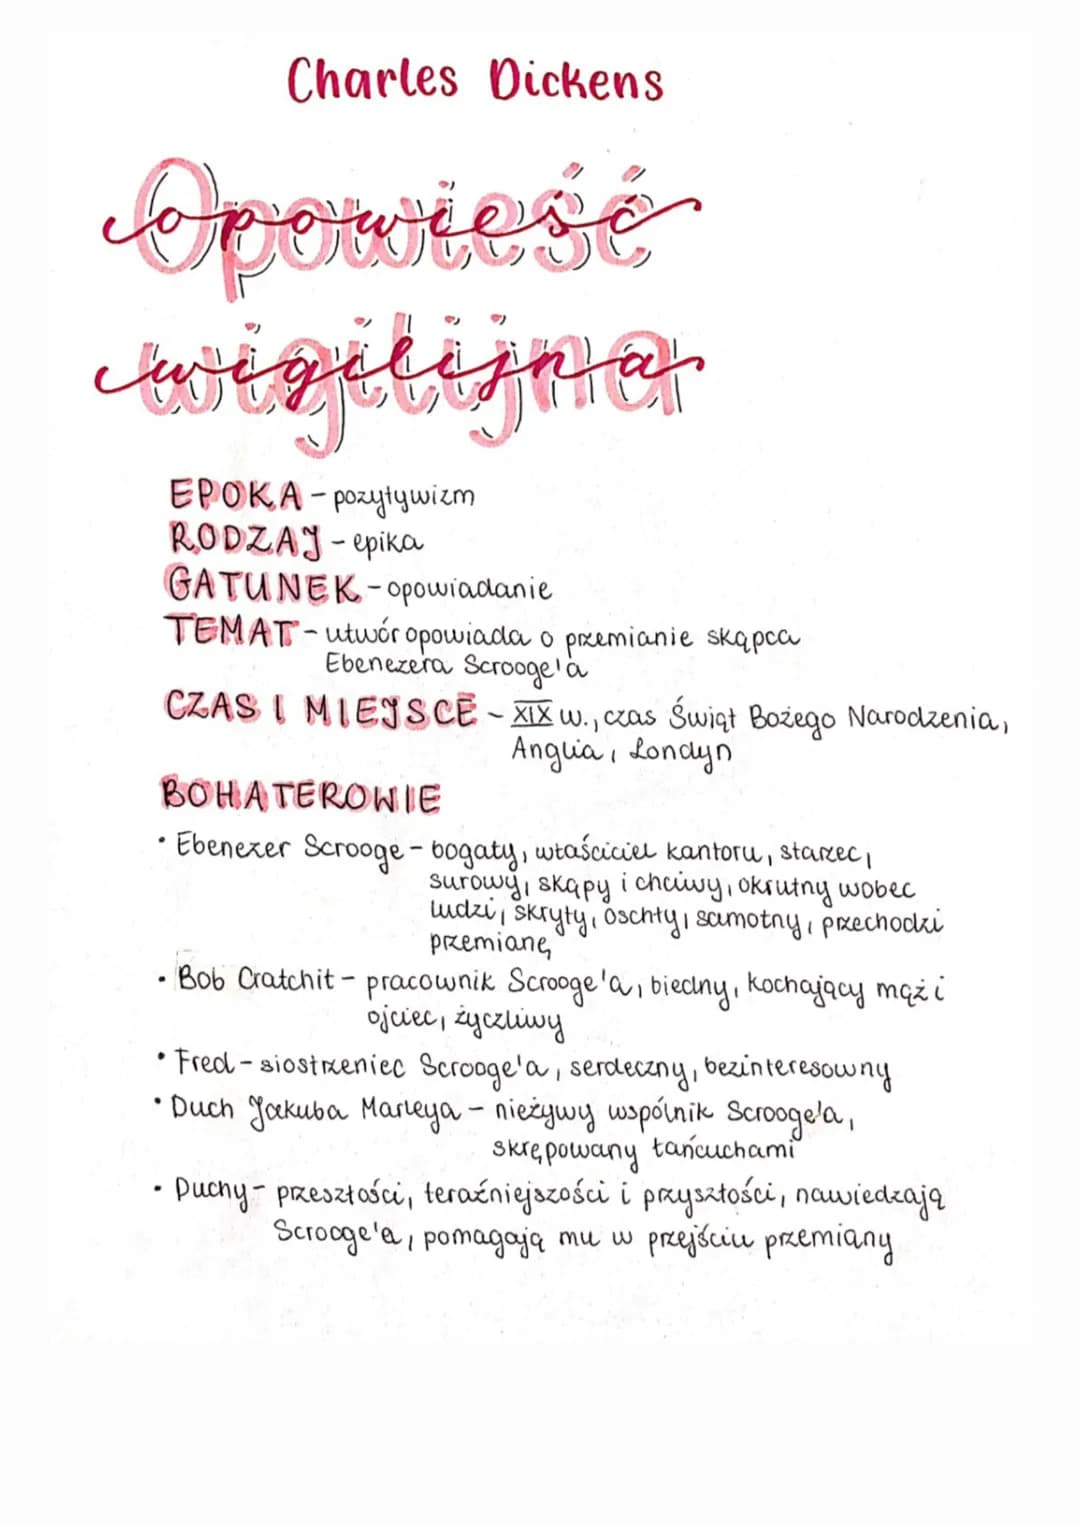 Charles Dickens
Opowieść
wigilijna
EPOKA - pozytywizm
RODZAJ - epika
GATUNEK - opowiadanie
TEMAT - utwór opowiada o przemianie skąpca
Ebenezera Scrooge'a
CZAS I MIEJSCE - XIX w., czas Świąt Bożego Narodzenia,
Anglia, Londyn
BOHATEROWIE
• Ebenezer Scrooge - bogaty, właściciel kantoru, starzec,
surowy, skąpy i chciwy, okrutny wobec
ludzi, skryty, oschły, samotny, przechodzi
przemianę
• Bob Cratchit - pracownik Scrooge'a, biedny, kochający mąż i
ojciec, życzliwy
• Fred - siostrzeniec Scrooge'a, serdeczny, bezinteresowny
• Duch Jakuba Marleya - nieżywy wspólnik Scrooge'a,
skrępowany łańcuchami
• Duchy - przeszłości, teraźniejszości i przyszłości, nawiedzają
Scrooge'a, pomagają mu w przejściu przemiany